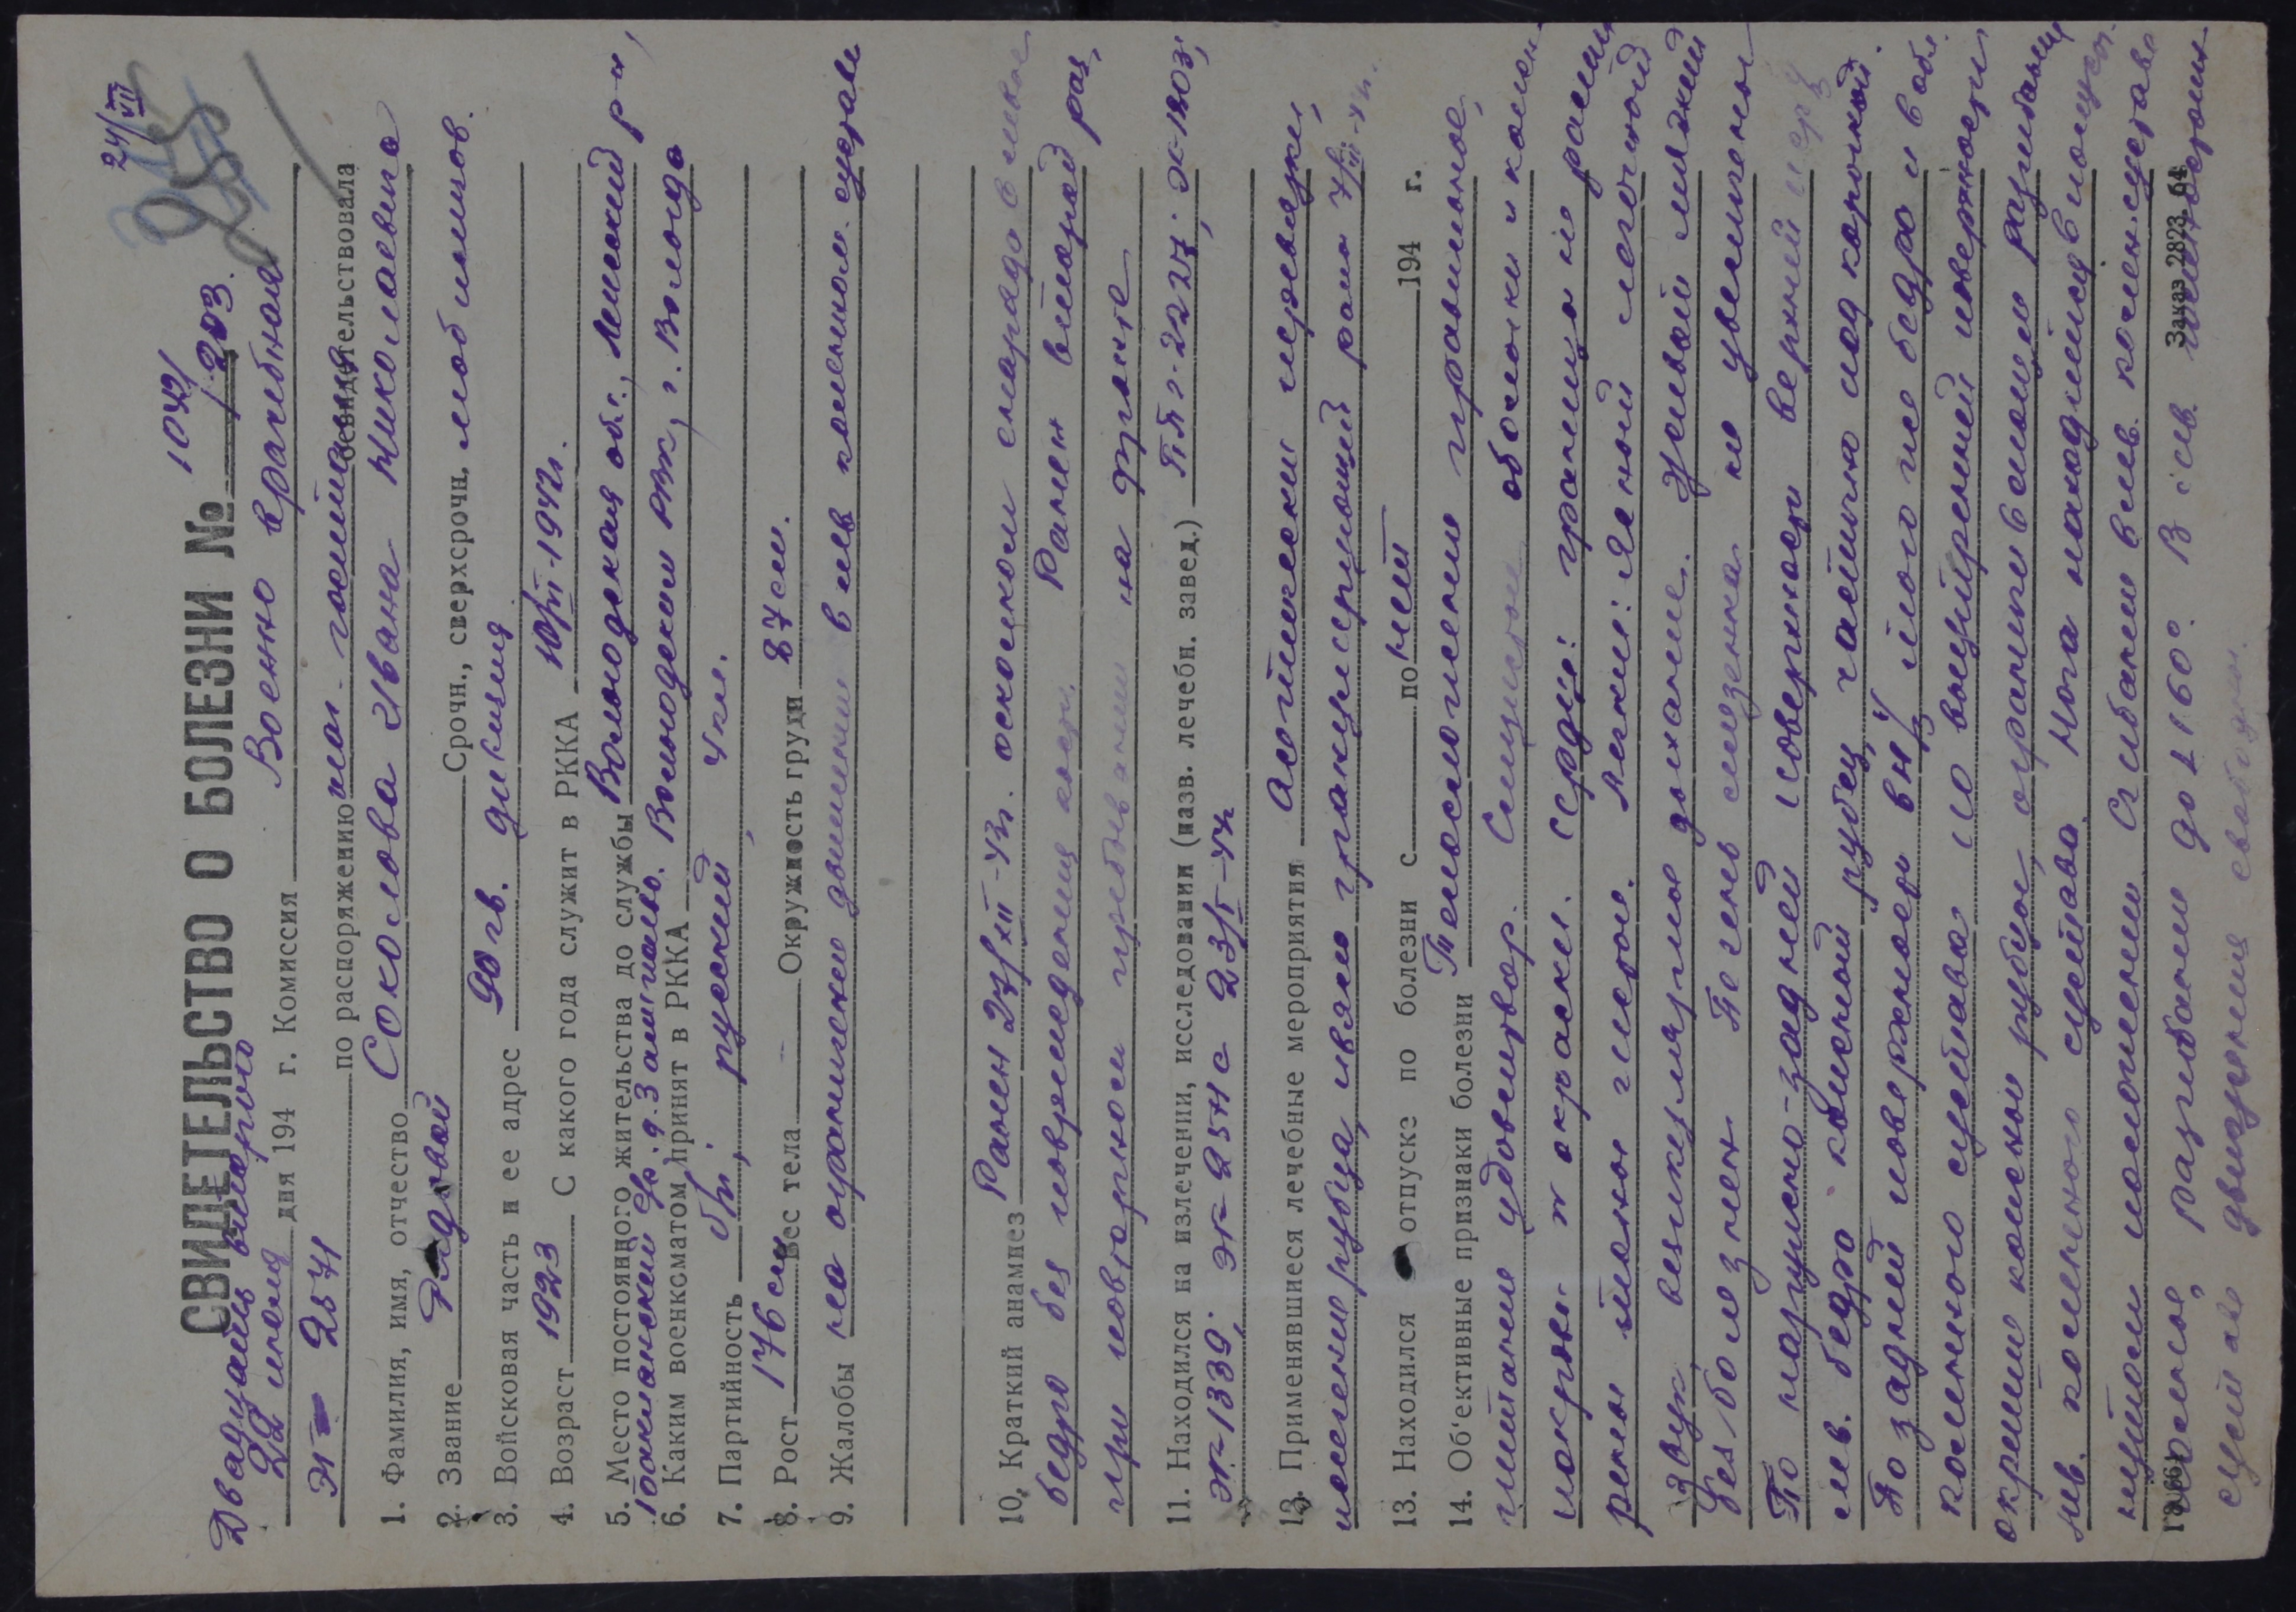 24/VII
1042/
СВИДЕТЕЛЬСТВО О БОЛЕЗНИ № /203.
Двадцать второго
22 июня дня 194 г. Комиссия Военно врачебная
ЭГ 2571 по распоряжению нач. госпиталя
освидетельствовала
1. Фамилия, имя, отчество Соколова Ивана Николаевича
2. Звание Рядовой Срочн., сверхсрочн. мобилизов.
3. Войсковая часть и ее адрес 90 гв. дивизия
4. Возраст 1923 С какого года служит в РККА 10/III-1942г.
5. Место постоянного жительства до службы Вологодская обл., Ленский р-н,
6. Каким военкоматом принят в РККА Вологодским РВК, г. Вологда
7. Партийность б/п, русский, 4 кл.
8. Рост 176 см Вес тела Окружность груди 87 см.
9. Жалобы на ограничение движения в лев. коленном суставе
10. Краткий анамнез Ранен 27/XII-43г. осколком снаряда в левое
бедро без повреждения кости. Ранен второй раз,
при повторном пребывании на фронте
11. Находился на излечении, исследовании (назв. лечебн. завед.) ППГ-2227; ЭГ-1803;
ЭГ-1339; ЭГ-2571 с 23/V-44г
12. Применявшиеся лечебные мероприятия Асептические перевязки,
иссечение рубца,
13. Находился в отпуске по болезни с по нет 194 г.
14. Об'ективные признаки болезни Телосложение правильное,
питание удовлетвор. Слизистые оболочки и кожн.
покровы N окраски. Сердце: границы не расши
рены тоны чистые. Легкие: Ясный легочной
звук, везикулярное дыхание. Живот мягкий
безболезнен. Печень селезенка не увеличены
По наружно-задней поверхности верхней
лев. бедра кожный рубец, частично под корочкой.
По задней поверхности в н/ левого бедра и в обл.
коленного сустава по внутренней поверхности
окрепшие кожные рубцы, ограничение разгибания
лев. коленного сустава. Нога находится в полусог
нутом положении. Сгибание в лев. колен. суставе
полное, разгибание до 160°. В лев.
суставе движения свободны.
Заказ 2823 64